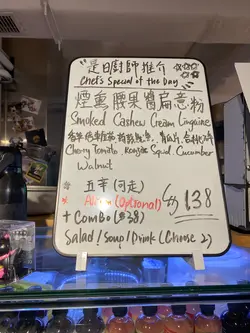 是日廚師推介
Chef's Special of the Day
煙熏腰果醬扁意粉
Smoked Cashew Cream Linguine
Cherry Tomato Squid Cucumber
Walnut
五辛(可走)
(Optional)
+ Combo (+$38)
$138
Salad/Soup/Drink (Choose 2)